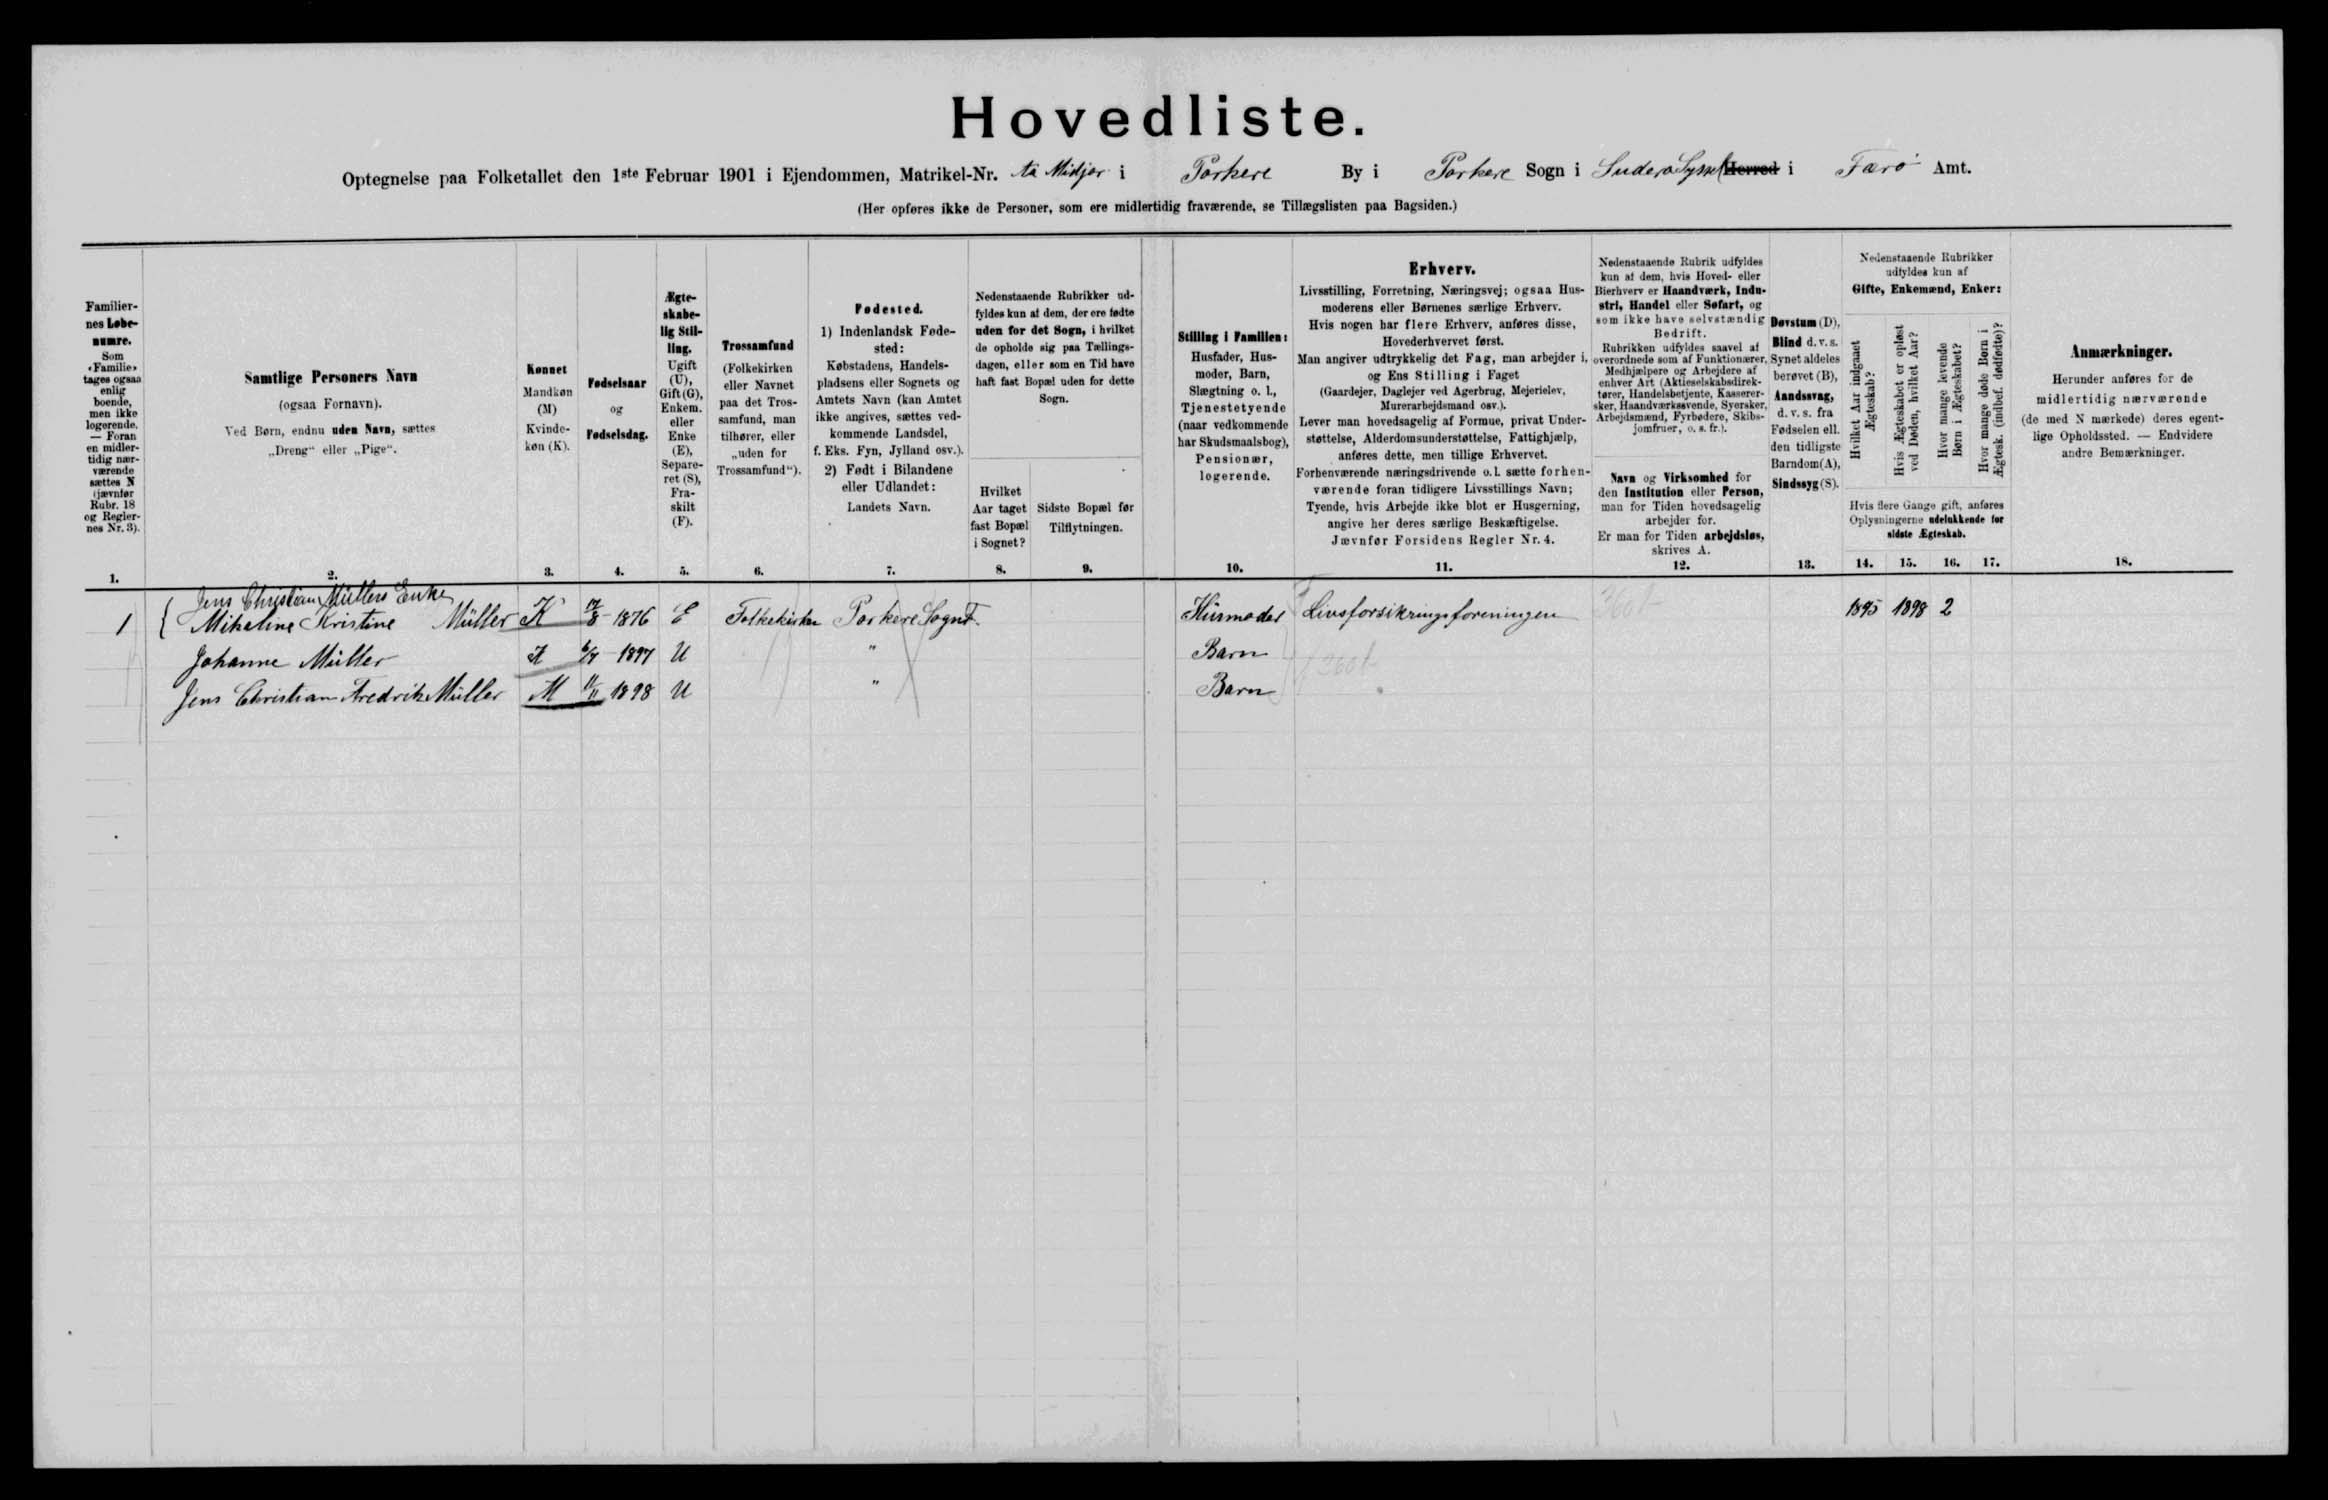 Hovedliste.
Optegnelse paa Folketallet den 1ste Februar 1901 i Ejendommen, Matrikel-Nr. i Porkere By i Porkere Sogn i Suderø Syssel Herred i Færø Amt.
(Her opføres ikke de Personer, som ere midlertidig fraværende, se Tillægslisten paa Bagsiden.)
Familier-
nes Løbe-
numre.
Som
«Familie»
tages ogsaa
enlig
boende,
men ikke
logerende.
— Foran
en midler-
tidig nær-
værende
sættes N
(jævnfør
Rubr. 18
og Regler-
nes Nr. 3).
1.
Samtlige Personers Navn
(ogsaa Fornavn).
Ved Børn, endnu uden Navn, sættes
„Dreng“ eller „Pige“.
2.
Kønnet
Mandkøn
(M)
Kvinde-
køn (K).
3.
Fødselsaar
og
Fødselsdag.
4.
Ægte-
skabe-
lig Stil-
ling.
Ugift
(U),
Gift (G),
Enkem.
eller
Enke
(E),
Separe-
ret (S),
Fra-
skilt
(F).
5.
Trossamfund
(Folkekirken
eller Navnet
paa det Tros-
samfund, man
tilhører, eller
„uden for
Trossamfund“).
6.
Fødested.
1) Indenlandsk Føde-
sted:
Købstadens, Handels-
pladsens eller Sognets og
Amtets Navn (kan Amtet
ikke angives, sættes ved-
kommende Landsdel,
f. Eks. Fyn, Jylland osv.).
2) Født i Bilandene
eller Udlandet:
Landets Navn.
7.
Nedenstaaende Rubrikker ud-
fyldes kun af dem, der ere fødte
uden for det Sogn, i hvilket
de opholde sig paa Tællings-
dagen, eller som en Tid have
haft fast Bopæl uden for dette
Sogn.
Hvilket
Aar taget
fast Bopæl
i Sognet?
8.
Sidste Bopæl før
Tilflytningen.
9.
Stilling i Familien:
Husfader, Hus-
moder, Barn,
Slægtning o. l.,
Tjenestetyende
(naar vedkommende
har Skudsmaalsbog),
Pensionær,
logerende.
10.
Erhverv.
Livsstilling, Forretning, Næringsvej; ogsaa Hus-
moderens eller Børnenes særlige Erhverv.
Hvis nogen har flere Erhverv, anføres disse,
Hovederhvervet først.
Man angiver udtrykkelig det Fag, man arbejder i,
og Ens Stilling i Faget
(Gaardejer, Daglejer ved Agerbrug, Mejerielev,
Murerarbejdsmand osv.).
Lever man hovedsagelig af Formue, privat Under-
støttelse, Alderdomsunderstøttelse, Fattighjælp,
anføres dette, men tillige Erhvervet.
Forhenværende næringsdrivende o. l. sætte forhen-
værende foran tidligere Livsstillings Navn;
Tyende, hvis Arbejde ikke blot er Husgerning,
angive her deres særlige Beskæftigelse.
Jævnfør Forsidens Regler Nr. 4.
11.
Nedenstaaende Rubrik udfyldes
kun af dem, hvis Hoved- eller
Bierhverv er Haandværk, Indu-
stri, Handel eller Søfart, og
som ikke have selvstændig
Bedrift.
Rubrikken udfyldes saavel af
overordnede som af Funktionærer,
Medhjælpere og Arbejdere af
enhver Art (Aktieselskabsdirek-
tører, Handelsbetjente, Kasserer-
sker, Haandværkssvende, Syersker,
Arbejdsmænd, Fyrbødere, Skibs-
jomfruer, o. s. fr.).
Navn og Virksomhed for
den Institution eller Person,
man for Tiden hovedsagelig
arbejder for.
Er man for Tiden arbejdsløs,
skrives A.
12.
Døvstum (D),
Blind d. v. s.
Synet aldeles
berøvet (B),
Aandssvag,
d. v. s. fra
Fødselen ell.
den tidligste
Barndom (A),
Sindssyg (S).
13.
Nedenstaaende Rubrikker
udfyldes kun af
Gifte, Enkemænd, Enker:
Hvilket Aar indgaaet
Ægteskab?
Hvis Ægteskabet er opløst
ved Døden, hvilket Aar?
Hvor mange levende
Børn i Ægteskabet?
Hvor mange døde Børn i
Ægtesk. (indbef. dødfødte)?
Hvis flere Gange gift, anføres
Oplysningerne udelukkende for
sidste Ægteskab.
14. 15. 16. 17.
Anmærkninger.
Herunder anføres for de
midlertidig nærværende
(de med N mærkede) deres egent-
lige Opholdssted. — Endvidere
andre Bemærkninger.
18.
Jens Christian Müllers Enke
1 Mikaline Kristine Müller K 17/8 1876 E Folkekirken Porkere Sogn Husmoder Livsforsikringsforeningen 1895 1898 2
Johanne Müller K 6/7 1897 U " Barn
Jens Christian Fredrik Müller M 11/11 1898 U " Barn